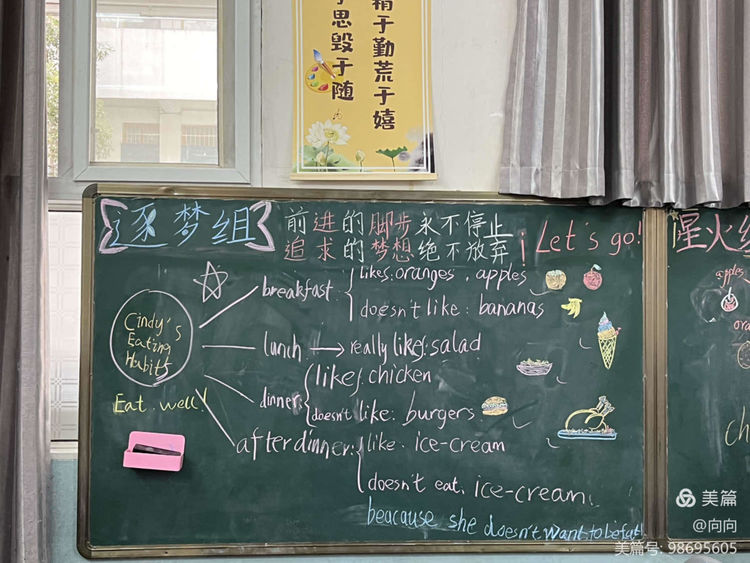 精于勤荒于嬉
思毁于随
逐梦组
前进的脚步永不停止
追求的梦想绝不放弃
Let's go!
星火
Cindy's
Eating
Habits
Eat well!
breakfast
likes: oranges, apples
doesn't like: bananas
lunch → really likes: salad
dinner:
likes: chicken
doesn't like: burgers
after dinner:
like: ice-cream
doesn't eat ice-cream
beacause she doesn't want to be fat
apples
ora
ch
美篇
@向向
美篇号: 98695605